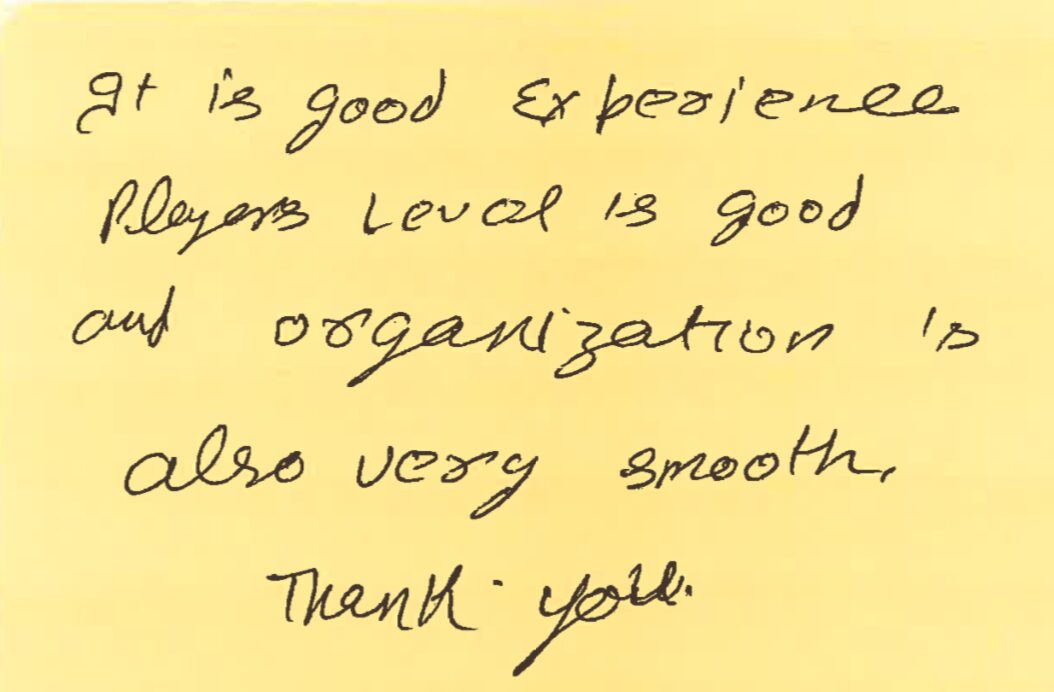 It is good Experience
Players Level is good
and organization is
also very smooth.
Thank you.